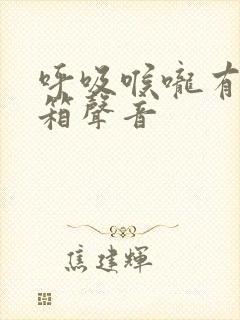 呼吸喉嚨有
箱聲音
焦建輝